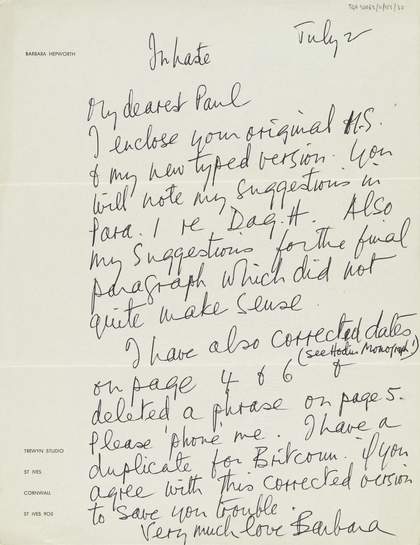 TGA 20163/2/1/17/30
BARBARA HEPWORTH
In haste
July 2
My dearest Paul
I enclose your original M.S.
& my new typed version. You
will note my suggestions in
Para. 1 re Dag. H. Also
my suggestions for the final
paragraph which did not
quite make sense.
I have also corrected dates
(see Hodin Monograph!)
on page 4 & 6 &
deleted a phrase on page 5.
Please 'phone me. I have a
duplicate for Britcoun. if you
agree with this corrected version
to save you trouble.
Very much love Barbara
TREWYN STUDIO
ST IVES
CORNWALL
ST IVES 905